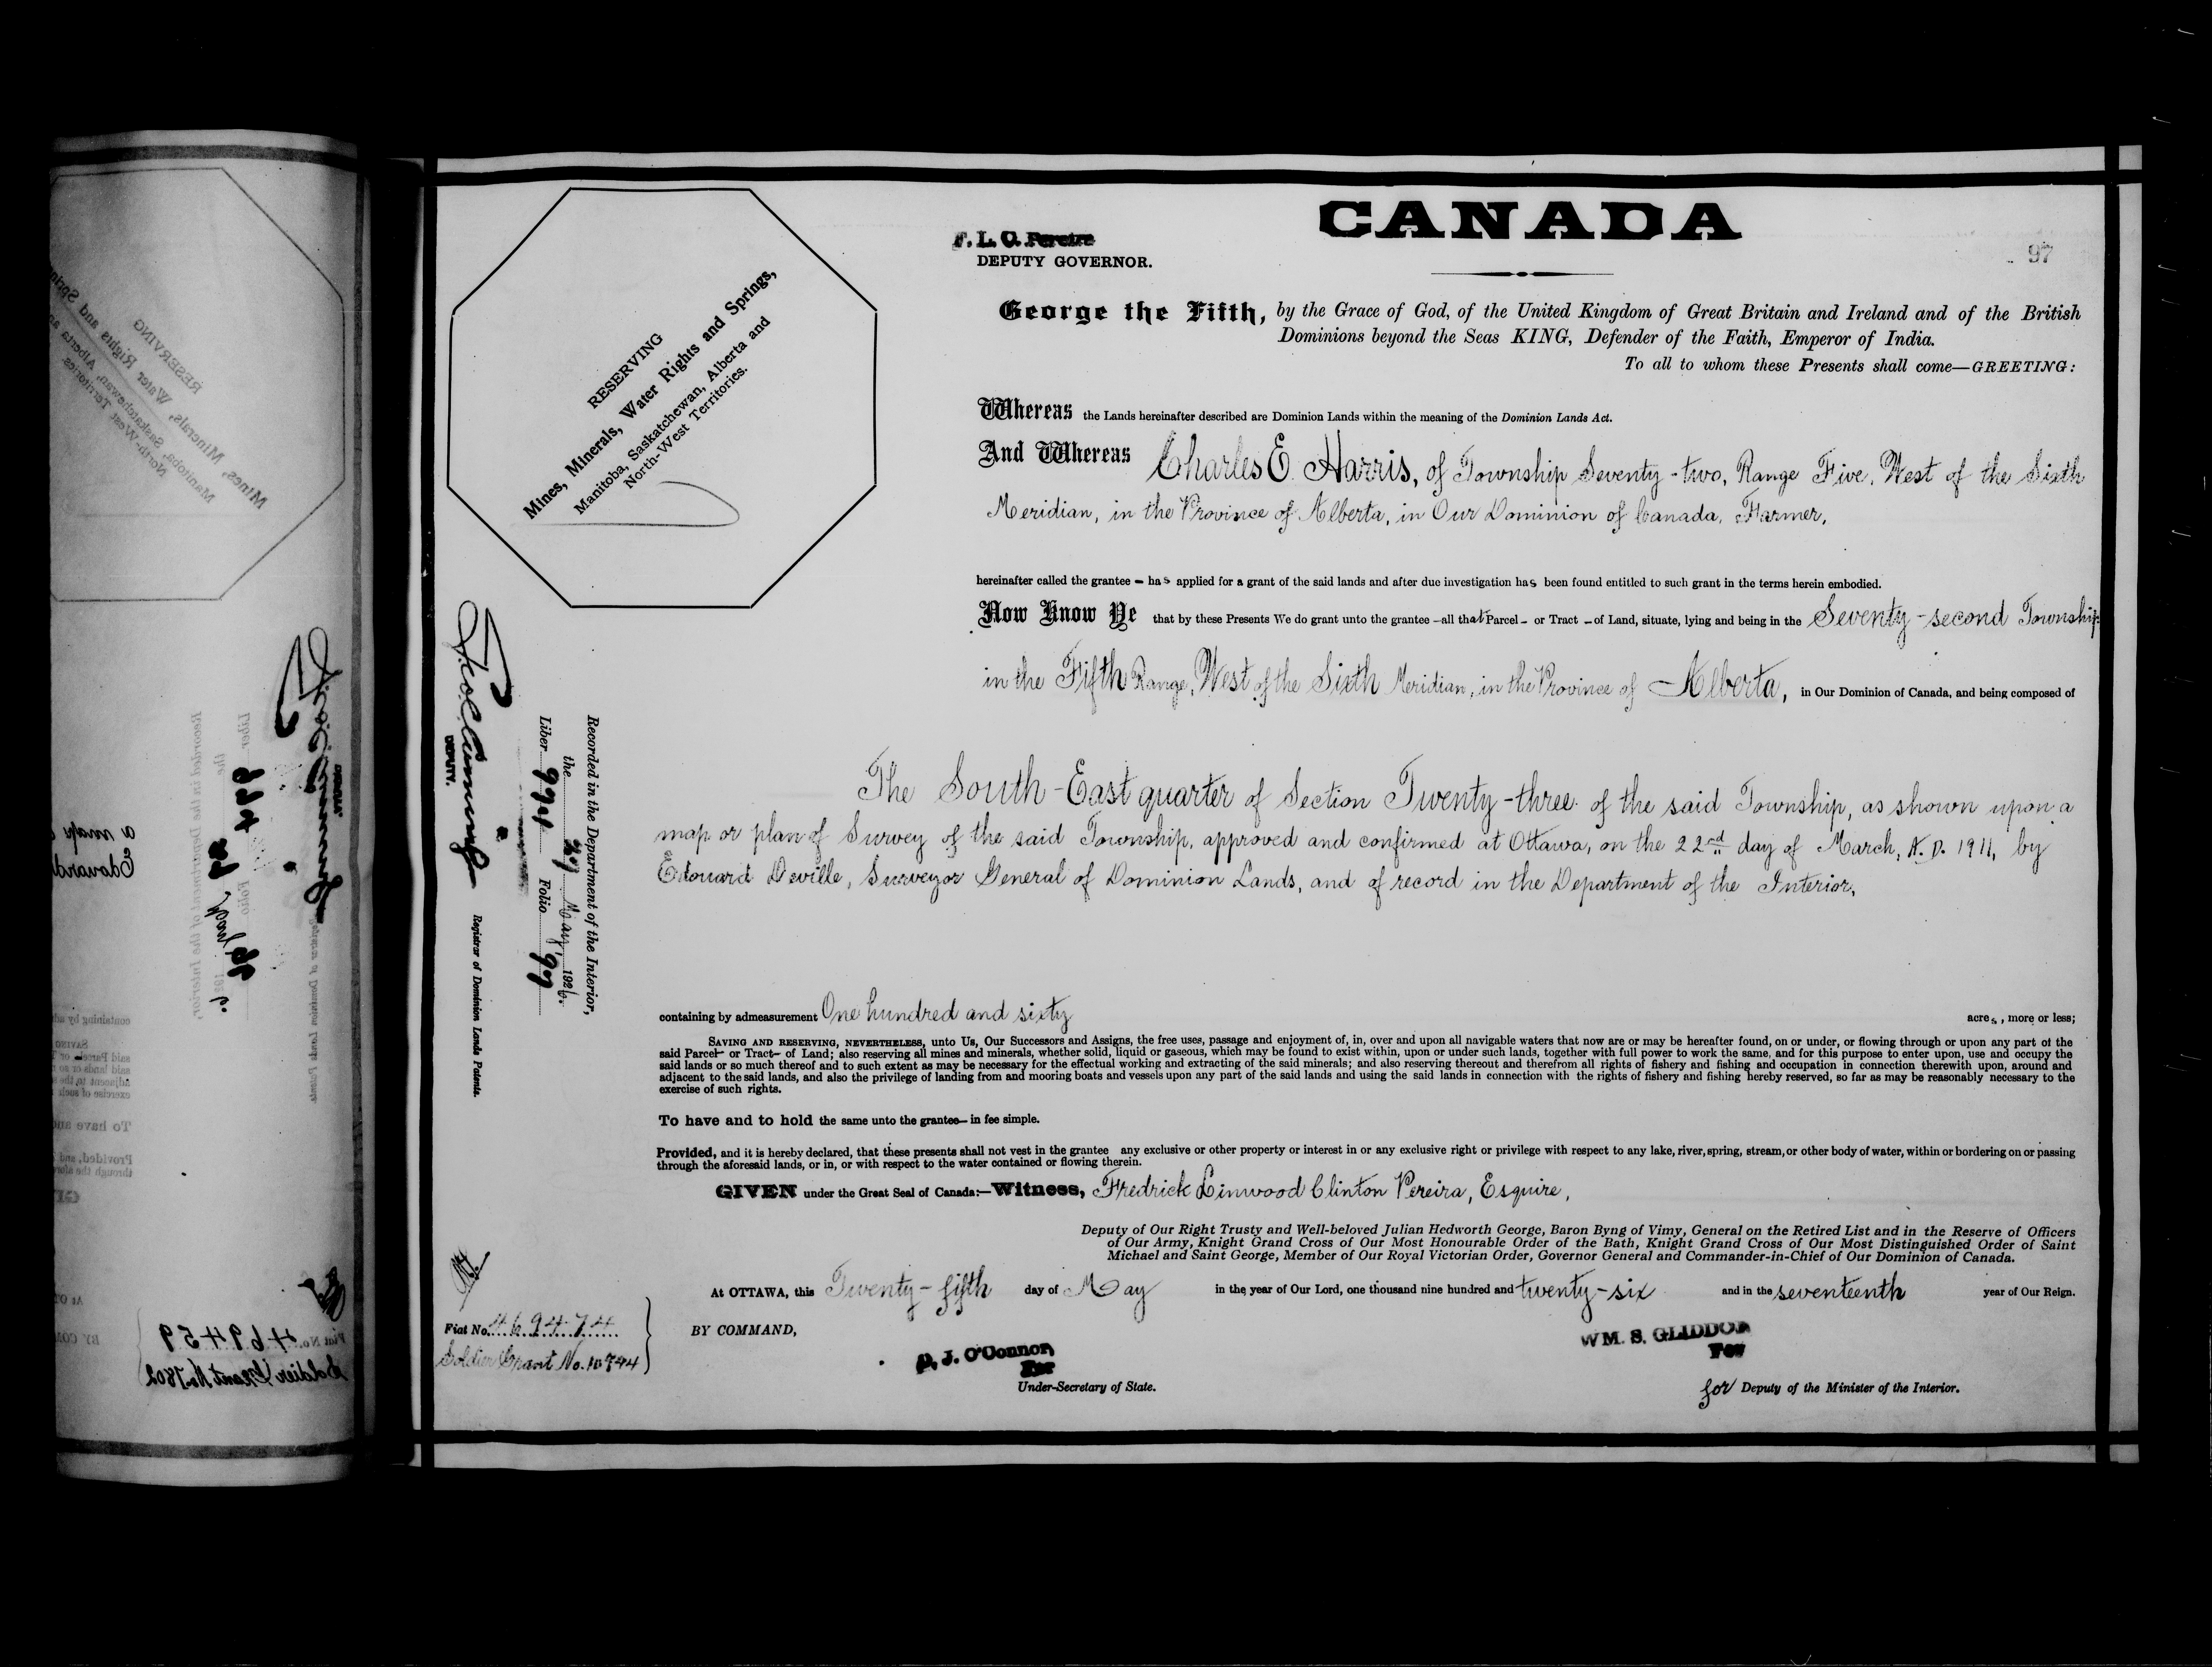 CANADA
F. L. C. Pereira
DEPUTY GOVERNOR.
97
George the Fifth, by the Grace of God, of the United Kingdom of Great Britain and Ireland and of the British
Dominions beyond the Seas KING, Defender of the Faith, Emperor of India.
To all to whom these Presents shall come—GREETING:
RESERVING
Mines, Minerals, Water Rights and Springs,
Manitoba, Saskatchewan, Alberta and
North-West Territories.
Whereas the Lands hereinafter described are Dominion Lands within the meaning of the Dominion Lands Act.
And Whereas Charles E. Harris, of Township Seventy-two, Range Five, West of the Sixth
Meridian, in the Province of Alberta, in Our Dominion of Canada, Farmer,
hereinafter called the grantee - has applied for a grant of the said lands and after due investigation has been found entitled to such grant in the terms herein embodied.
Now Know Ye that by these Presents We do grant unto the grantee —all that Parcel - or Tract - of Land, situate, lying and being in the Seventy-second Township
in the Fifth Range, West of the Sixth Meridian, in the Province of Alberta, in Our Dominion of Canada, and being composed of
The South-East quarter of Section Twenty-three of the said Township, as shown upon a
map or plan of Survey of the said Township, approved and confirmed at Ottawa, on the 22nd day of March, A. D. 1911, by
Edouard Deville, Surveyor General of Dominion Lands, and of record in the Department of the Interior,
Recorded in the Department of the Interior,
the 27 May, 1926.
Liber Folio 97
DEPUTY.
Registrar of Dominion Lands Patents.
containing by admeasurement One hundred and sixty acres, more or less;
SAVING AND RESERVING, NEVERTHELESS, unto Us, Our Successors and Assigns, the free uses, passage and enjoyment of, in, over and upon all navigable waters that now are or may be hereafter found, on or under, or flowing through or upon any part of the
said Parcel- or Tract- of Land; also reserving all mines and minerals, whether solid, liquid or gaseous, which may be found to exist within, upon or under such lands, together with full power to work the same, and for this purpose to enter upon, use and occupy the
said lands or so much thereof and to such extent as may be necessary for the effectual working and extracting of the said minerals; and also reserving thereout and therefrom all rights of fishery and fishing and occupation in connection therewith upon, around and
adjacent to the said lands, and also the privilege of landing from and mooring boats and vessels upon any part of the said lands and using the said lands in connection with the rights of fishery and fishing hereby reserved, so far as may be reasonably necessary to the
exercise of such rights.
To have and to hold the same unto the grantee— in fee simple.
Provided, and it is hereby declared, that these presents shall not vest in the grantee any exclusive or other property or interest in or any exclusive right or privilege with respect to any lake, river, spring, stream, or other body of water, within or bordering on or passing
through the aforesaid lands, or in, or with respect to the water contained or flowing therein.
GIVEN under the Great Seal of Canada:—Witness, Fredrick Linwood Clinton Pereira, Esquire,
Deputy of Our Right Trusty and Well-beloved Julian Hedworth George, Baron Byng of Vimy, General on the Retired List and in the Reserve of Officers
of Our Army, Knight Grand Cross of Our Most Honourable Order of the Bath, Knight Grand Cross of Our Most Distinguished Order of Saint
Michael and Saint George, Member of Our Royal Victorian Order, Governor General and Commander-in-Chief of Our Dominion of Canada.
At OTTAWA, this Twenty-fifth day of May in the year of Our Lord, one thousand nine hundred and twenty-six and in the seventeenth year of Our Reign.
Fiat No. 469474
Soldier Grant No. 10744
BY COMMAND,
D. J. O'Connor,
For
Under-Secretary of State.
WM. S. GLIDDON
For
for Deputy of the Minister of the Interior.